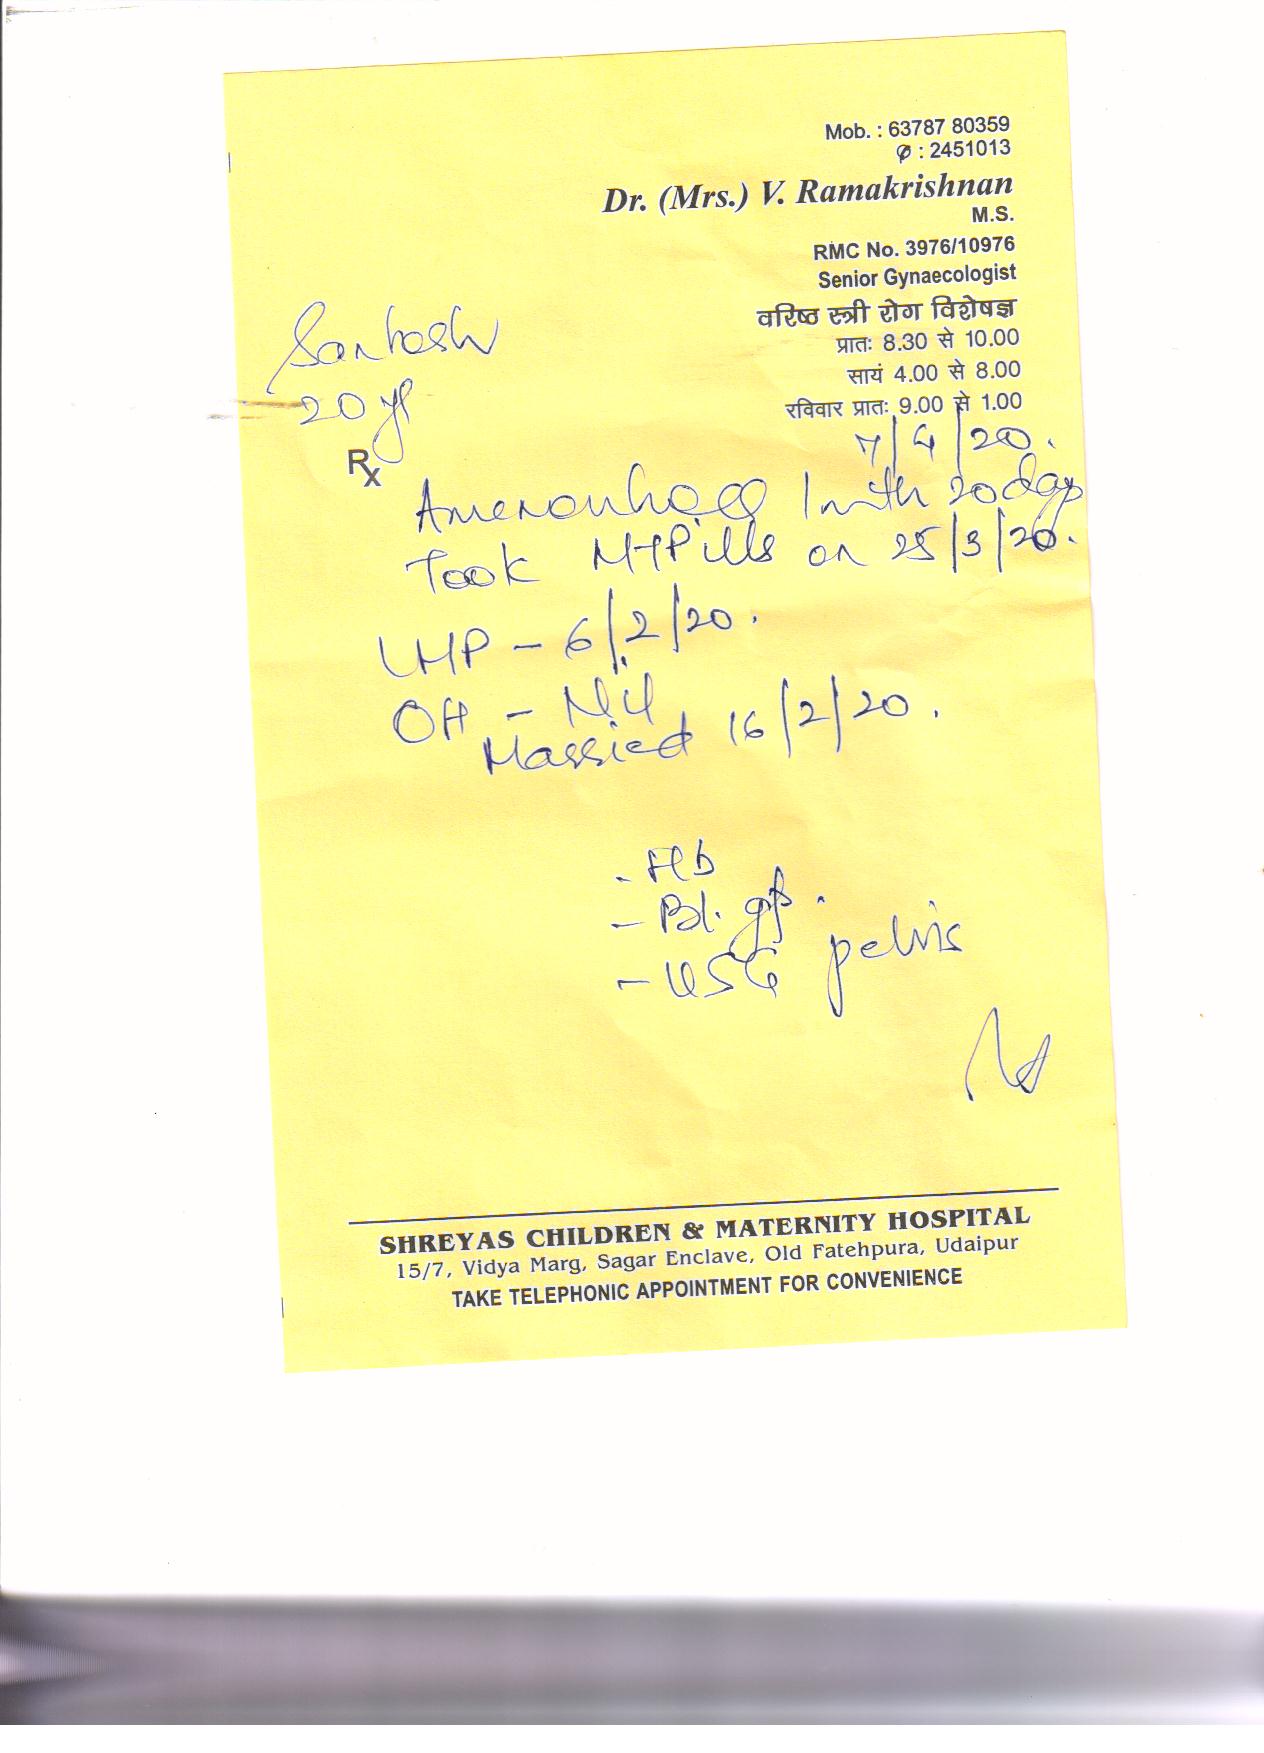 Mob. : 63787 80359
✆ : 2451013
Dr. (Mrs.) V. Ramakrishnan
M.S.
RMC No. 3976/10976
Senior Gynaecologist
वरिष्ठ स्त्री रोग विशेषज्ञ
प्रातः 8.30 से 10.00
सायं 4.00 से 8.00
रविवार प्रातः 9.00 से 1.00
Santosh
20 yr
7/4/20.
Rx
Amenorrhoea 1 mth 20 days
Took MTPills on 25/3/20.
LMP - 6/2/20.
OH - Nil
Married 16/2/20.
- Hb
- Bl. gp.
- USG pelvis
SHREYAS CHILDREN & MATERNITY HOSPITAL
15/7, Vidya Marg, Sagar Enclave, Old Fatehpura, Udaipur
TAKE TELEPHONIC APPOINTMENT FOR CONVENIENCE